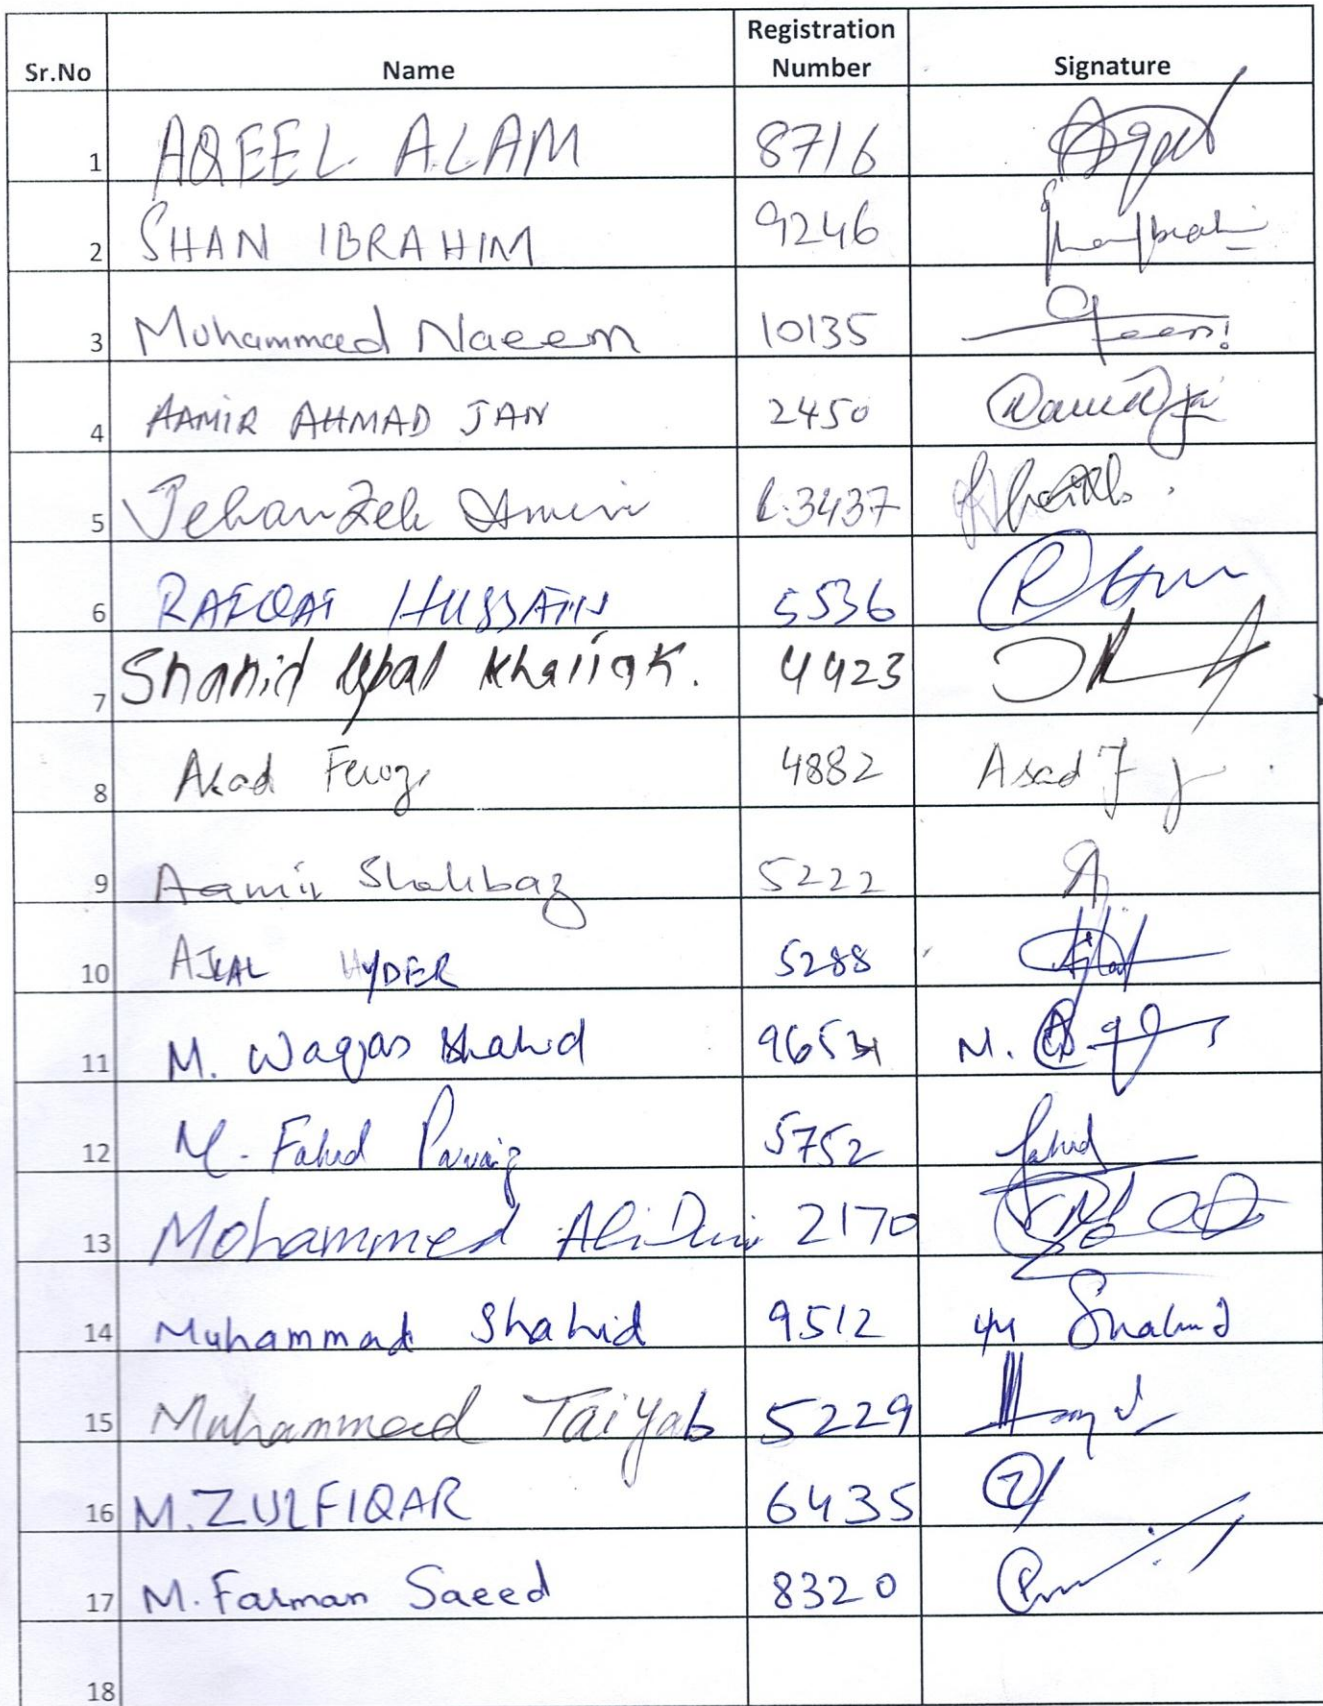 Sr.No Name Registration Number Signature
1 AQEEL ALAM 8716 Aqeel
2 SHAN IBRAHIM 9246
3 Muhammad Naeem 10135
4 AAMIR AHMAD JAN 2450
5 Jehanzeb Amin 3437
6 RAFQAT HUSSAIN 5536
7 Shahid Iqbal Khattak. 4423
8 Asad Feroz 4882 Asad F
9 Aamir Shahbaz 5222
10 HYDER 5288
11 M. Waqas Khalid M.
12 M. Fahid Parvaiz 5752 Fahid
13 Mohammed Ali 2170
14 Muhammad Shahid 9512 M Shahid
15 Muhammad Taiyab 5229
16 M.ZULFIQAR 6435
17 M. Farman Saeed 8320
18